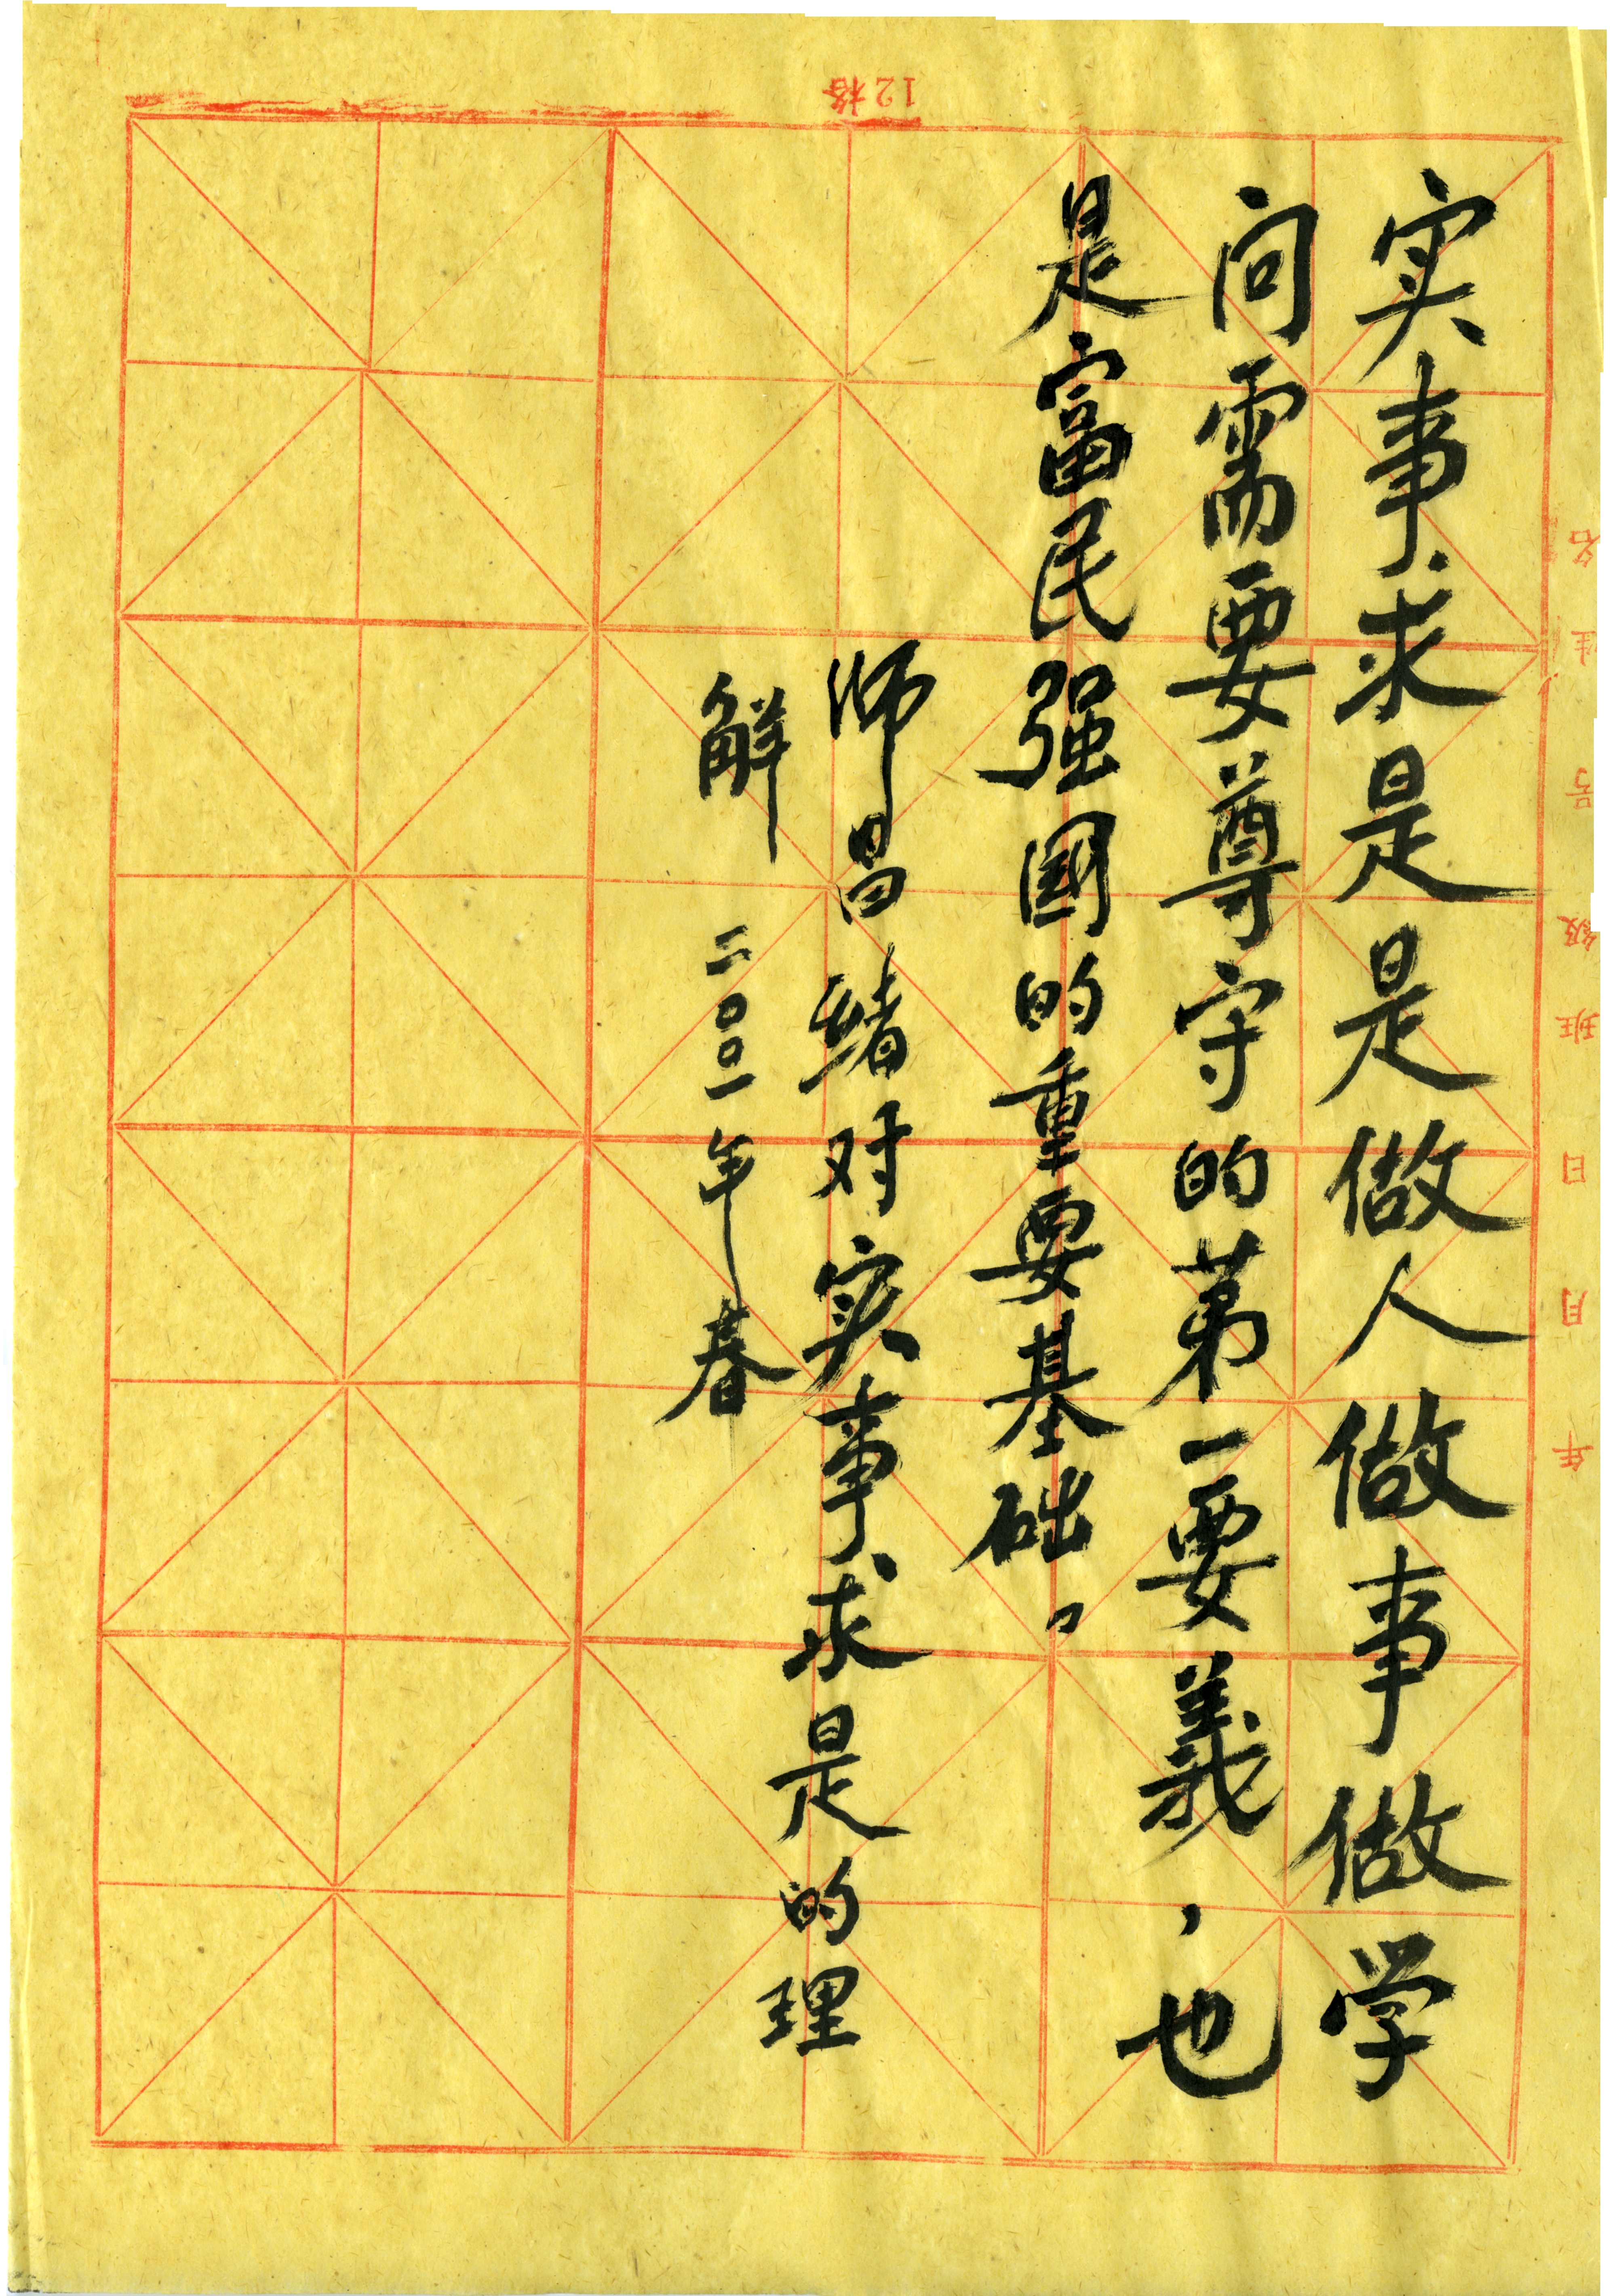 实事求是是做人做事做学
问需要尊守的第一要義，也
是富民强国的重要基础。
师昌绪对实事求是的理
解 二〇〇一年春
12格
年 月 日 班级 号 姓名